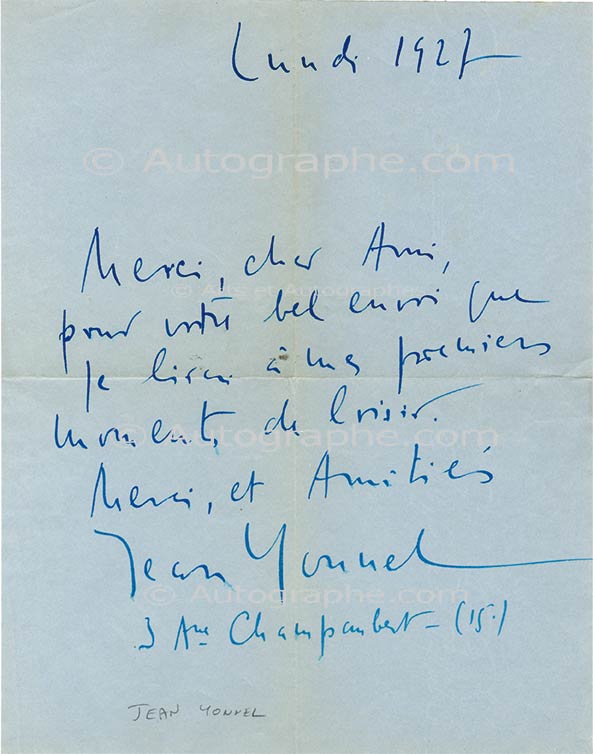 Lundi 1927
© Autographe.com
Merci, cher Ami,
© Arts et Autographes
pour votre bel envoi que
je lirai à mes premiers
moments de loisir.
© Autographe.com
Merci, et Amitiés
Jean Yonnel
© Autographe.com
3 Ave Champaubert - (15e)
JEAN YONNEL